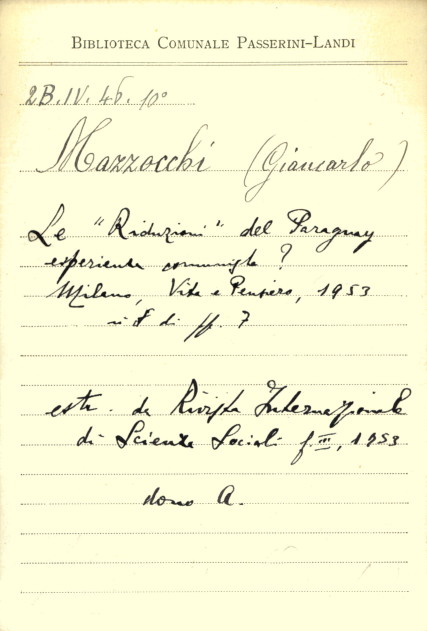 BIBLIOTECA COMUNALE PASSERINI-LANDI
2B.IV.46. 10°
Mazzocchi (Giancarlo)
Le "Riduzioni" del Paraguay
esperienza comunista ?
Milano, Vita e Pensiero, 1953
in 8 di pp. 7
estr. da Rivista Internazionale
di Scienze Sociali f. III, 1953
dono A.